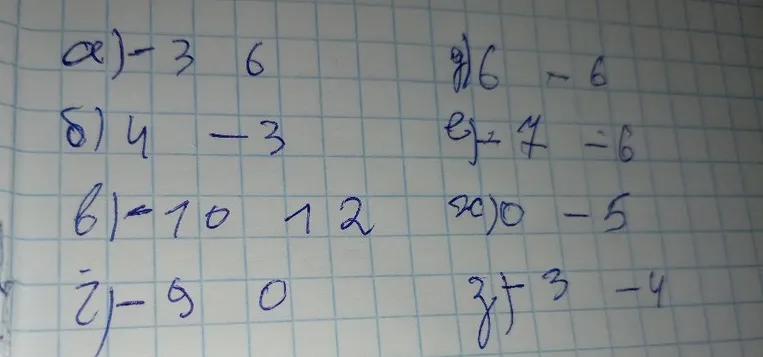 а) -3 6
б) 4 -3
в) -10 12
г) -9 0
д) 6 -6
е) -7 -6
ж) 0 -5
з) -3 -4